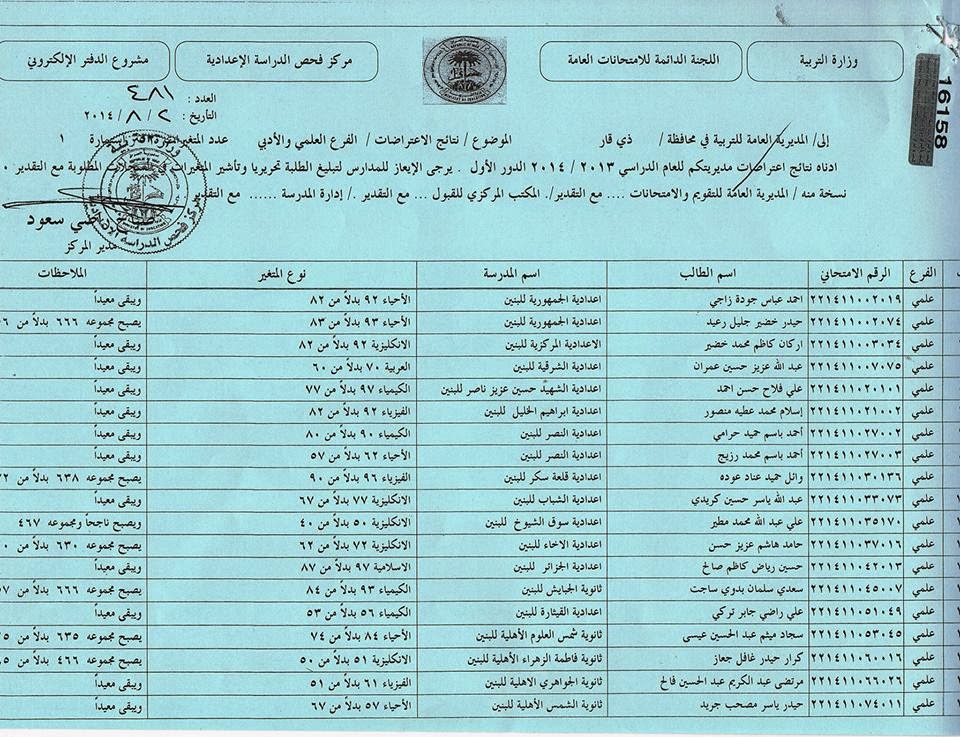 وزارة التربية
اللجنة الدائمة للامتحانات العامة
مركز فحص الدراسة الإعدادية
مشروع الدفتر الإلكتروني
16158
العدد : ٤٨١
التأريخ : ٢ / ٨ / ٢٠١٤
إلى/ المديرية العامة للتربية في محافظة / ذي قار الموضوع / نتائج الاعتراضات / الفرع العلمي والأدبي عدد المتغيرات استمارة ١
ادناه نتائج اعتراضات مديريتكم للعام الدراسي ٢٠١٣ / ٢٠١٤ الدور الأول . يرجى الإيعاز للمدارس لتبليغ الطلبة تحريريا وتأشير المتغيرات في المطلوبة مع التقدير ٠
نسخة منه / المديرية العامة للتقويم والامتحانات .... مع التقدير/. المكتب المركزي للقبول ... مع التقدير ./ إدارة المدرسة ...... مع التقدير
سعود
مدير المركز
الفرع الرقم الامتحاني اسم الطالب اسم المدرسة نوع المتغير الملاحظات
علمي ٢٢١٤١١٠٠٢٠١٩ احمد عباس جودة زاجي اعدادية الجمهورية للبنين الأحياء ٩٢ بدلاً من ٨٢ ويبقى معيداً
علمي ٢٢١٤١١٠٠٢٠٧٤ حيدر خضير جليل رعيد اعدادية الجمهورية للبنين الأحياء ٩٣ بدلاً من ٨٣ يصبح مجموعه ٦٦٦ بدلاً من
علمي ٢٢١٤١١٠٠٣٠٣٤ اركان كاظم محمد خضير الاعدادية المركزية للبنين الانكليزية ٩٢ بدلاً من ٨٢ ويبقى معيداً
علمي ٢٢١٤١١٠٠٧٠٧٥ عبد الله عزيز حسين عمران اعدادية الشرقية للبنين العربية ٧٠ بدلاً من ٦٠ ويبقى معيداً
علمي ٢٢١٤١١٠٢٠١٠١ علي فلاح حسن احمد اعدادية الشهيد حسين عزيز ناصر للبنين الكيمياء ٩٧ بدلاً من ٧٧ ويبقى معيداً
علمي ٢٢١٤١١٠٢١٠٠٢ إسلام محمد عطيه منصور اعدادية ابراهيم الخليل للبنين الفيزياء ٩٢ بدلاً من ٨٢ ويبقى معيداً
علمي ٢٢١٤١١٠٢٧٠٠٢ أحمد باسم حميد حرامي اعدادية النصر للبنين الكيمياء ٩٠ بدلاً من ٨٠ ويبقى معيداً
علمي ٢٢١٤١١٠٢٧٠٠٣ أحمد باسم محمد رزيج اعدادية النصر للبنين الأحياء ٦٢ بدلاً من ٥٧ ويبقى معيداً
علمي ٢٢١٤١١٠٣٠١٣٦ وائل حميد عناد عوده اعدادية قلعة سكر للبنين الفيزياء ٩٦ بدلاً من ٩٠ يصبح مجموعه ٦٣٨ بدلاً من
علمي ٢٢١٤١١٠٣٣٠٧٣ عبد الله ياسر حسين كريدي اعدادية الشباب للبنين الانكليزية ٧٧ بدلاً من ٦٧ ويبقى معيداً
علمي ٢٢١٤١١٠٣٥١٧٠ علي عبد الله محمد مطير اعدادية سوق الشيوخ للبنين الانكليزية ٥٠ بدلاً من ٤٠ ويصبح ناجحاً ومجموعه ٤٦٧
علمي ٢٢١٤١١٠٣٧٠١٦ حامد هاشم عزيز حسن اعدادية الاخاء للبنين الانكليزية ٧٢ بدلاً من ٦٢ يصبح مجموعه ٦٣٠ بدلاً من
علمي ٢٢١٤١١٠٤٢٠١٣ حسين رياض كاظم صالح اعدادية الجزائر للبنين الاسلامية ٩٧ بدلاً من ٨٧ ويبقى معيداً
علمي ٢٢١٤١١٠٤٥٠٠٧ سعدي سلمان بدوي ساجت ثانوية الجبايش للبنين الكيمياء ٩٣ بدلاً من ٨٤ يصبح مجموعه ٦٦٦ بدلاً من
علمي ٢٢١٤١١٠٥١٠٤٩ علي راضي جابر تركي اعدادية القيثارة للبنين الكيمياء ٥٦ بدلاً من ٥٣ ويبقى معيداً
علمي ٢٢١٤١١٠٥٣٠٤٥ سجاد ميثم عبد الحسين عيسى ثانوية شمس العلوم الأهلية للبنين الأحياء ٨٤ بدلاً من ٧٤ يصبح مجموعه ٦٣٥ بدلاً من
علمي ٢٢١٤١١٠٦٠٠١٦ كرار حيدر غافل جعاز ثانوية فاطمة الزهراء الأهلية للبنين الانكليزية ٥١ بدلاً من ٥٠ يصبح مجموعه ٤٦٦ بدلاً من
علمي ٢٢١٤١١٠٦٦٠٢٦ مرتضى عبد الكريم عبد الحسين فالح ثانوية الجواهري الاهلية للبنين الفيزياء ٦١ بدلاً من ٥١ ويبقى معيداً
علمي ٢٢١٤١١٠٧٤٠١١ حيدر ياسر مصحب جريد ثانوية الشمس الأهلية للبنين الأحياء ٥٧ بدلاً من ٦٧ ويبقى معيداً